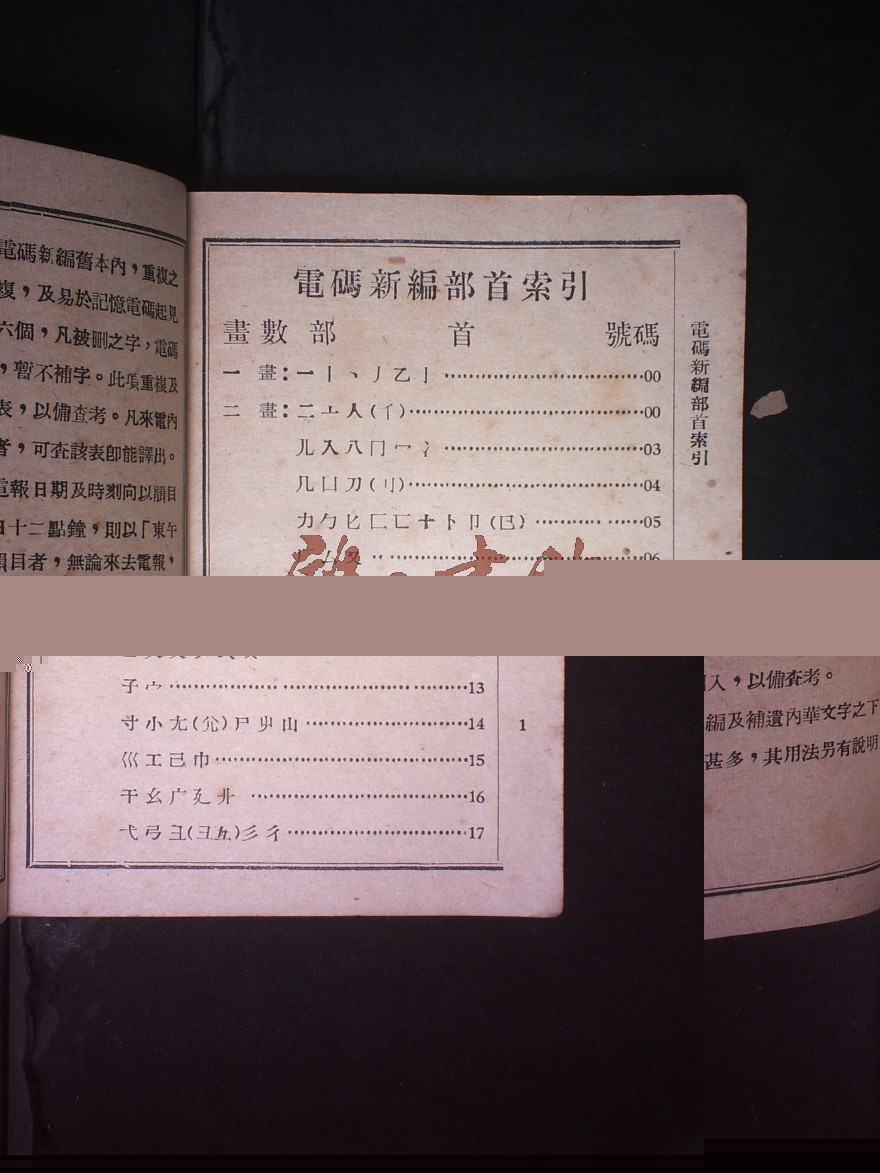 電碼新編舊本內，重複之
複，及易於記憶電碼起見
六個，凡被刪之字，電碼
，暫不補字。此項重複及
表，以備查考。凡來電內
者，可查該表卽能譯出。
電報日期及時刻向以韻目
日十二點鐘，則以「東午
韻目者，無論來去電報，
電碼新編部首索引
畫數 部 首 號碼
一 畫：一丨丶丿乙亅…00
二 畫：二亠人(亻)…00
儿入八冂冖冫…03
几凵刀(刂)…04
力勹匕匚匸十卜卩(㔾)…05
厂厶又…06
電碼新編部首索引
子宀…13
寸小尢(尣)尸屮山…14
巛工己巾…15
干幺广廴廾…16
弋弓彐彡彳…17
1
入，以備查考。
編及補遺內華文字之下
甚多，其用法另有說明